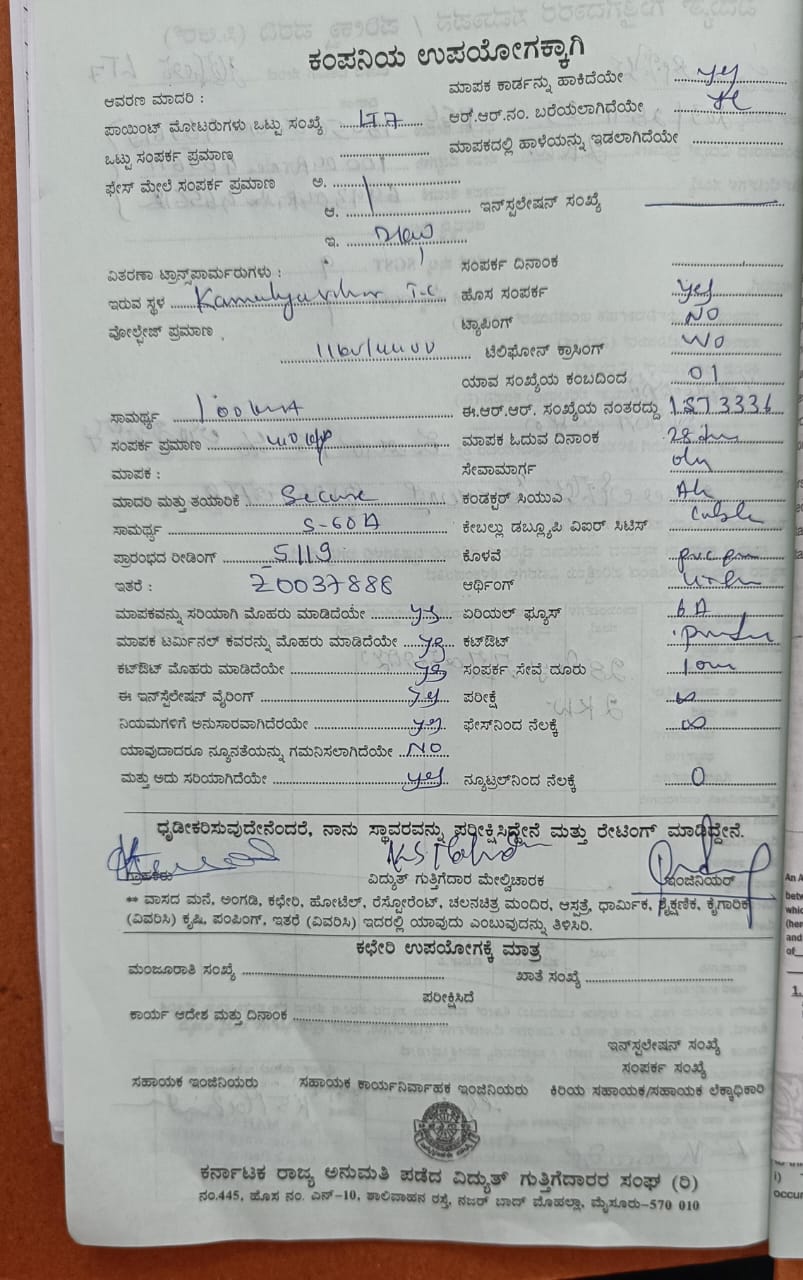 ಕಂಪನಿಯ ಉಪಯೋಗಕ್ಕಾಗಿ
ಆವರಣ ಮಾದರಿ :
ಮಾಪಕ ಕಾರ್ಡನ್ನು ಹಾಕಿದೆಯೇ yes
ಪಾಯಿಂಟ್ ಮೋಟರುಗಳು ಒಟ್ಟು ಸಂಖ್ಯೆ LT7
ಆರ್.ಆರ್.ನಂ. ಬರೆಯಲಾಗಿದೆಯೇ
ಒಟ್ಟು ಸಂಪರ್ಕ ಪ್ರಮಾಣ
ಮಾಪಕದಲ್ಲಿ ಹಾಳೆಯನ್ನು ಇಡಲಾಗಿದೆಯೇ
ಫೇಸ್ ಮೇಲೆ ಸಂಪರ್ಕ ಪ್ರಮಾಣ ಅ.
ಆ. ಇನ್‌ಸ್ಪಲೇಷನ್ ಸಂಖ್ಯೆ
ಇ. New
ವಿತರಣಾ ಟ್ರಾನ್ಸ್‌ಫಾರ್ಮರುಗಳು :
ಸಂಪರ್ಕ ದಿನಾಂಕ
ಇರುವ ಸ್ಥಳ T.C
ಹೊಸ ಸಂಪರ್ಕ yes
ವೋಲ್ಟೇಜ್ ಪ್ರಮಾಣ
ಟ್ಯಾಪಿಂಗ್ NO
ಟೆಲಿಫೋನ್ ಕ್ರಾಸಿಂಗ್ NO
ಯಾವ ಸಂಖ್ಯೆಯ ಕಂಬದಿಂದ 01
ಸಾಮರ್ಥ್ಯ 100 KVA
ಈ.ಆರ್.ಆರ್. ಸಂಖ್ಯೆಯ ನಂತರದ್ದು
ಸಂಪರ್ಕ ಪ್ರಮಾಣ
ಮಾಪಕ ಓದುವ ದಿನಾಂಕ
ಮಾಪಕ :
ಸೇವಾಮಾರ್ಗ
ಮಾದರಿ ಮತ್ತು ತಯಾರಿಕೆ Secure
ಕಂಡಕ್ಟರ್ ಸಿಯುಎ
ಸಾಮರ್ಥ್ಯ 5-60A
ಕೇಬಲ್ಲು ಡಬ್ಲ್ಯೂಪಿ ವಿಐರ್ ಸಿಟಿಸ್ Cable
ಪ್ರಾರಂಭದ ರೀಡಿಂಗ್ 5119
ಕೊಳವೆ
ಇತರೆ : Z0037886
ಆರ್ಥಿಂಗ್
ಮಾಪಕವನ್ನು ಸರಿಯಾಗಿ ಮೊಹರು ಮಾಡಿದೆಯೇ yes
ಏರಿಯಲ್ ಫ್ಯೂಸ್ 6A
ಮಾಪಕ ಟರ್ಮಿನಲ್ ಕವರನ್ನು ಮೊಹರು ಮಾಡಿದೆಯೇ yes
ಕಟ್‌ಔಟ್
ಕಟ್‌ಔಟ್ ಮೊಹರು ಮಾಡಿದೆಯೇ yes
ಸಂಪರ್ಕ ಸೇವೆ ದೂರು
ಈ ಇನ್‌ಸ್ಪೆಲೇಷನ್ ವೈರಿಂಗ್ yes
ಪರೀಕ್ಷೆ ∞
ನಿಯಮಗಳಿಗೆ ಅನುಸಾರವಾಗಿದೆರಯೇ yes
ಫೇಸ್‌ನಿಂದ ನೆಲಕ್ಕೆ ∞
ಯಾವುದಾದರೂ ನ್ಯೂನತೆಯನ್ನು ಗಮನಿಸಲಾಗಿದೆಯೇ NO
ಮತ್ತು ಅದು ಸರಿಯಾಗಿದೆಯೇ yes
ನ್ಯೂಟ್ರಲ್‌ನಿಂದ ನೆಲಕ್ಕೆ 0
ಧೃಡೀಕರಿಸುವುದೇನೆಂದರೆ, ನಾನು ಸ್ಥಾವರವನ್ನು ಪರೀಕ್ಷಿಸಿದ್ದೇನೆ ಮತ್ತು ರೇಟಿಂಗ್ ಮಾಡಿದ್ದೇನೆ.
ಗ್ರಾಹಕರು ವಿದ್ಯುತ್ ಗುತ್ತಿಗೆದಾರ ಮೇಲ್ವಿಚಾರಕ ಇಂಜಿನಿಯರ್
** ವಾಸದ ಮನೆ, ಅಂಗಡಿ, ಕಛೇರಿ, ಹೋಟೆಲ್, ರೆಸ್ಟೋರೆಂಟ್, ಚಲನಚಿತ್ರ ಮಂದಿರ, ಆಸ್ಪತ್ರೆ, ಧಾರ್ಮಿಕ, ಶೈಕ್ಷಣಿಕ, ಕೈಗಾರಿಕೆ
(ವಿವರಿಸಿ) ಕೃಷಿ, ಪಂಪಿಂಗ್, ಇತರೆ (ವಿವರಿಸಿ) ಇದರಲ್ಲಿ ಯಾವುದು ಎಂಬುವುದನ್ನು ತಿಳಿಸಿರಿ.
ಕಛೇರಿ ಉಪಯೋಗಕ್ಕೆ ಮಾತ್ರ
ಮಂಜೂರಾತಿ ಸಂಖ್ಯೆ ಖಾತೆ ಸಂಖ್ಯೆ
ಪರೀಕ್ಷಿಸಿದೆ
ಕಾರ್ಯ ಆದೇಶ ಮತ್ತು ದಿನಾಂಕ
ಇನ್‌ಸ್ಪಲೇಷನ್ ಸಂಖ್ಯೆ
ಸಂಪರ್ಕ ಸಂಖ್ಯೆ
ಸಹಾಯಕ ಇಂಜಿನಿಯರು ಸಹಾಯಕ ಕಾರ್ಯನಿರ್ವಾಹಕ ಇಂಜಿನಿಯರು ಕಿರಿಯ ಸಹಾಯಕ/ಸಹಾಯಕ ಲೆಕ್ಕಾಧಿಕಾರಿ
ಕರ್ನಾಟಕ ರಾಜ್ಯ ಅನುಮತಿ ಪಡೆದ ವಿದ್ಯುತ್ ಗುತ್ತಿಗೆದಾರರ ಸಂಘ (ರಿ)
ನಂ.445, ಹೊಸ ನಂ. ಎನ್-10, ಶಾಲಿವಾಹನ ರಸ್ತೆ, ನಜರ್ ಬಾದ್ ಮೊಹಲ್ಲಾ, ಮೈಸೂರು-570 010